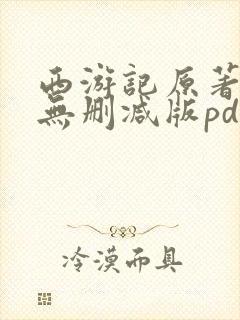 西游記原著
無删减版pd
冷漠面具